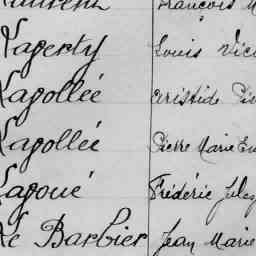 Laurent François M
Lagerty Louis Vic
Lagollée Aristide Pie
Lagollée Pierre Marie Eu
Lagoué Frédéric Jules
Le Barbier Jean Marie